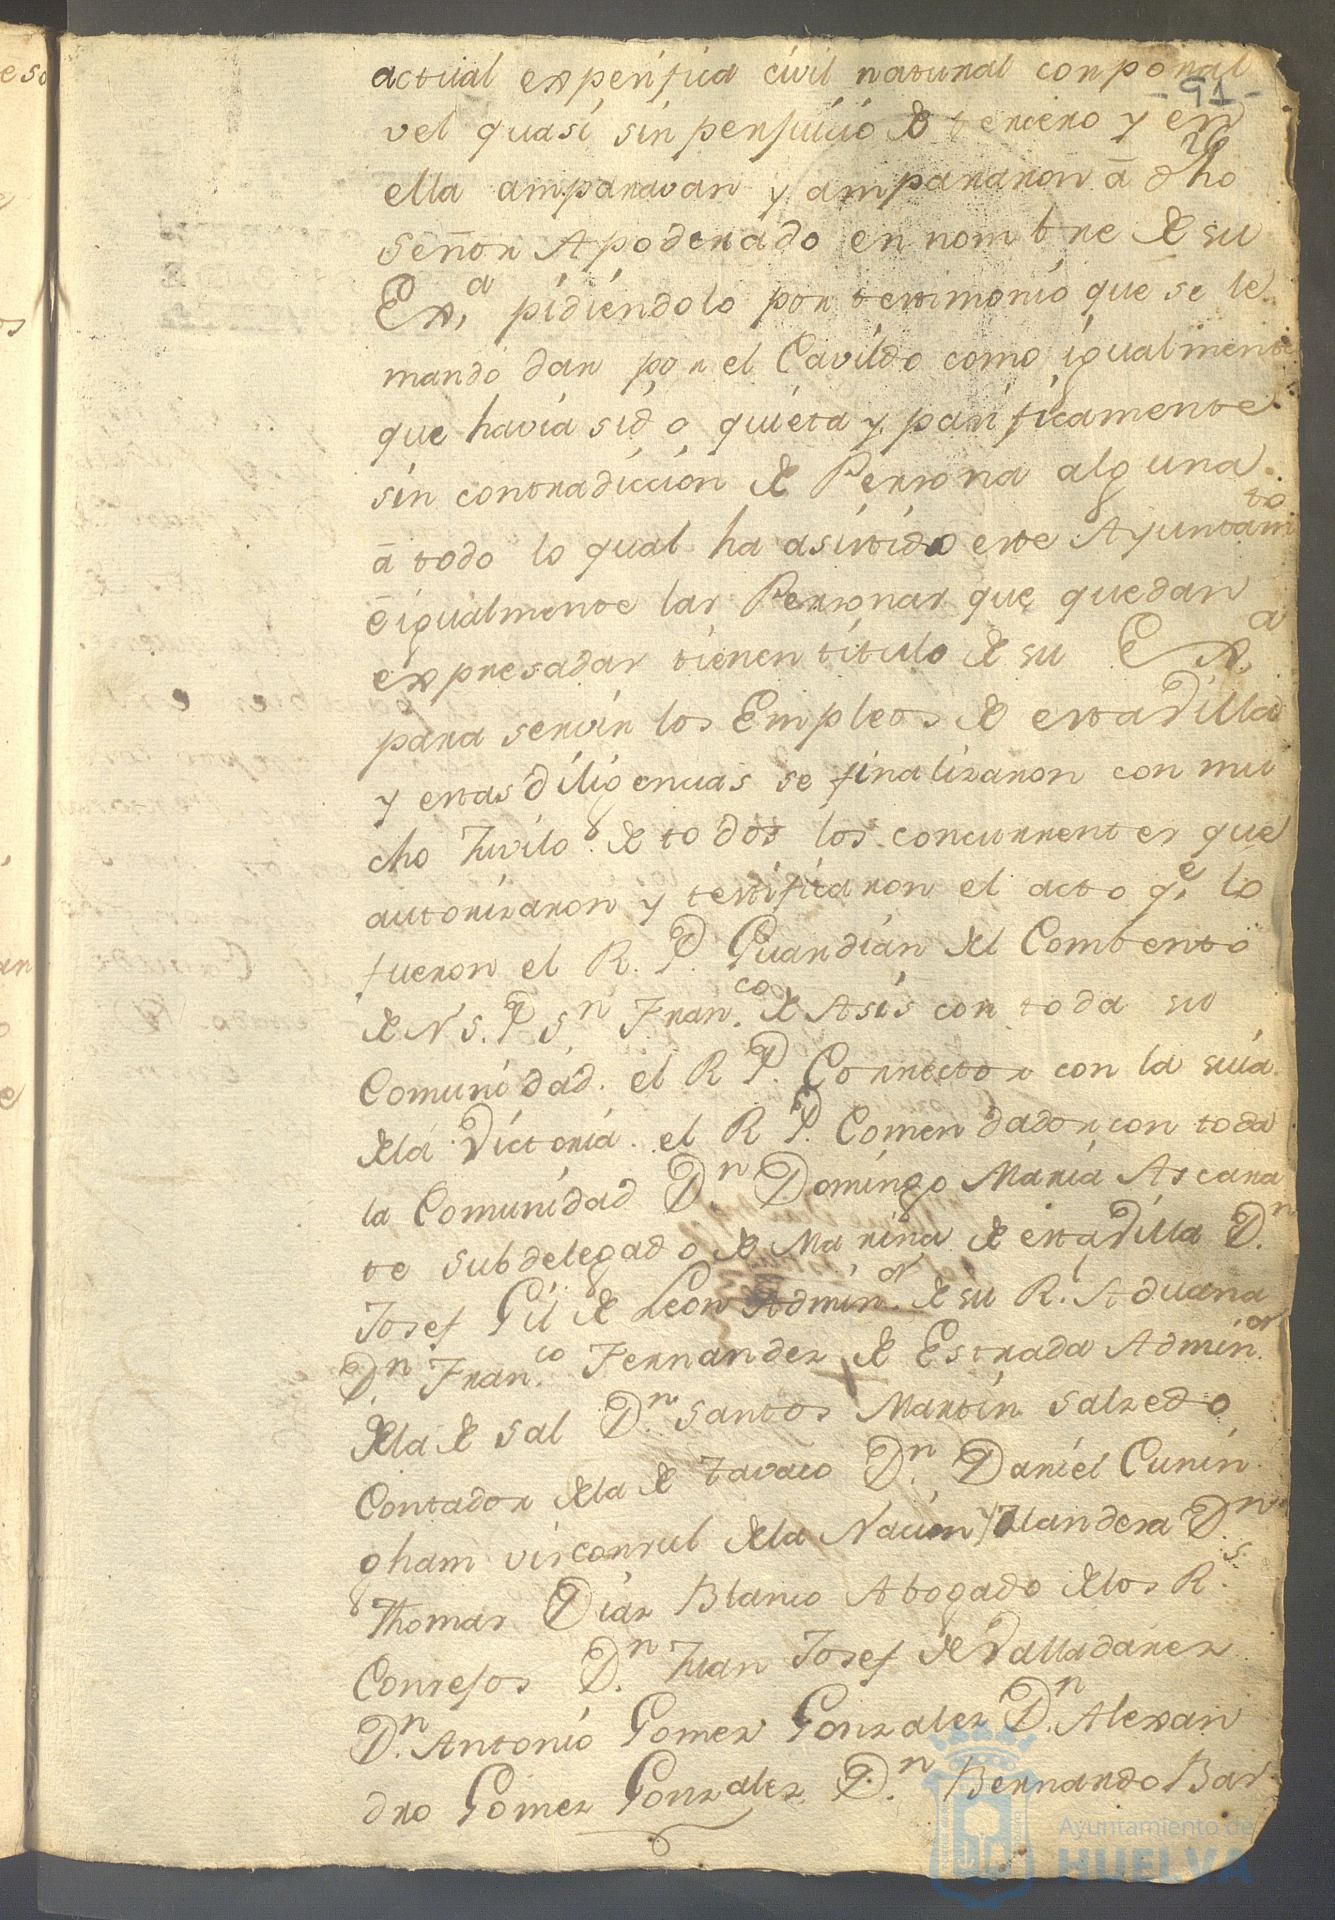 actual expecifica civil natural corporal
- 91 -
vel quasi sin perjuicio de tercero y en
ella amparavan y ampararon â dho
señor Apoderado en nombre de su
Ex.ª pidiendolo por testimonio que se le
mandó dar por el Cavildo como igualmente
que havia sido quieta y pacificamente
sin contradiccion de Persona alguna
â todo lo qual ha asistido este Ayuntam.to
ê igualmente las Personas que quedan
expresadas tienen titulo de su Ex.ª
para servir los Empleos de esta Villa
y estas diligencias se finalizaron con mu
cho Juvilo de todos los concurrentes que
autorizaron y testificaron el acto q.e lo
fueron el R. P. Guardian del Combento
de N S. P. S.n Fran.co de Asis con toda su
Comunidad. el R P. Corrector con la suia
de la Victoria. el R P. Comendador con toda
la Comunidad D.n Domingo Maria Ascara
te subdelegado de Marina de esta Villa D.n
Josef Gil de Leon Admin.or de su R.l Aduana
D.n Fran.co Fernandez de Estrada Admin.or
de la de Sal D.n Santos Martin Salzedo
Contador de la de Tavaco D.n Daniel Cunin
gham visconsul de la Nacion Yrlandera D.n
Thomas Diaz Blanco Abogado de los R.s
Consejos D.n Juan Josef de Valladares
D.n Antonio Gomez Gonzalez D.n Alexan
dro Gomez Gonzalez D.n Bernardo Bar
Ayuntamiento de
HUELVA